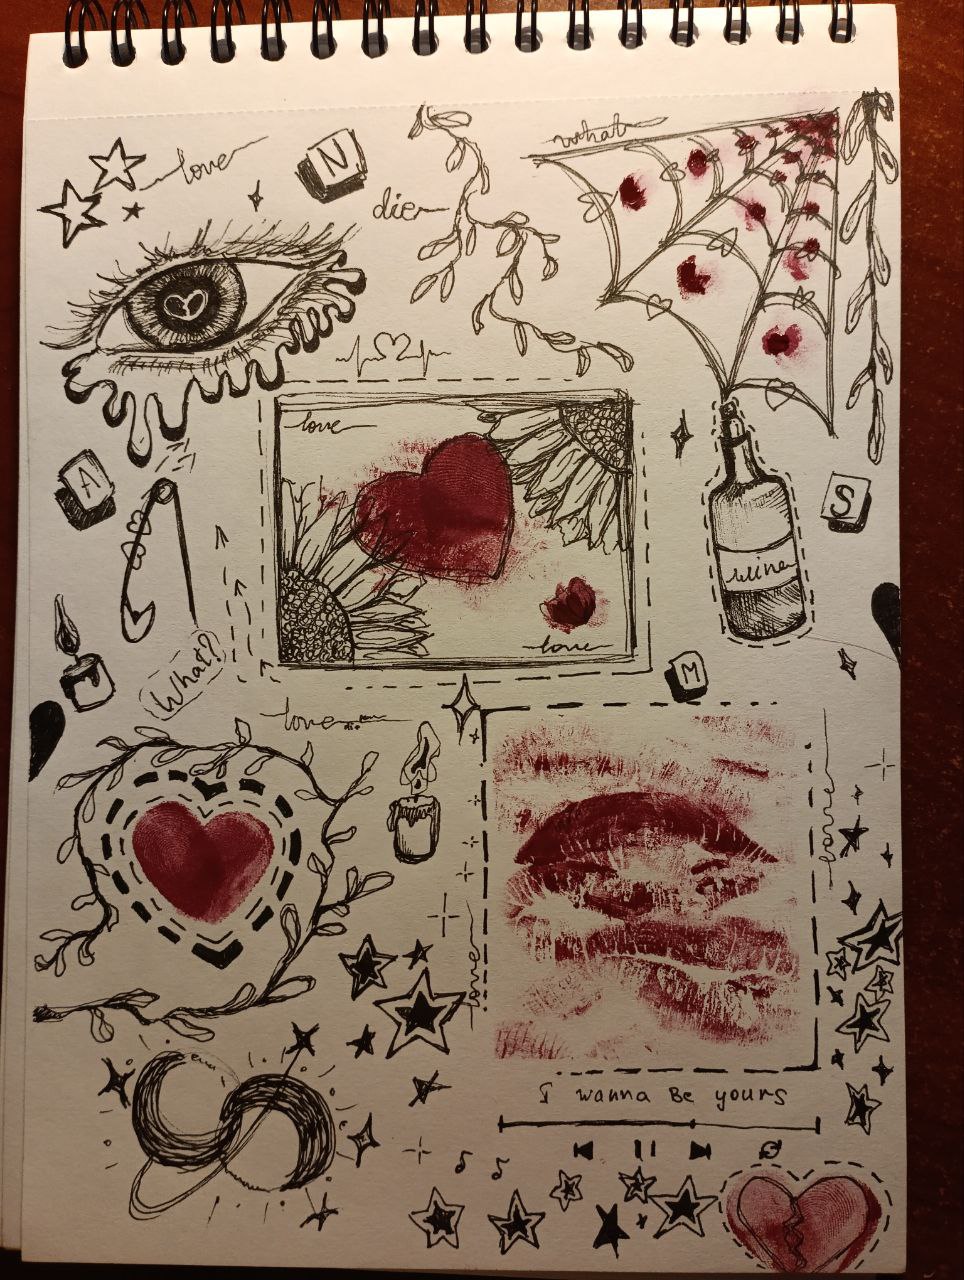 love
N
die
what
love
A
S
wine
What?
love
M
love
love
love
I wanna Be yours